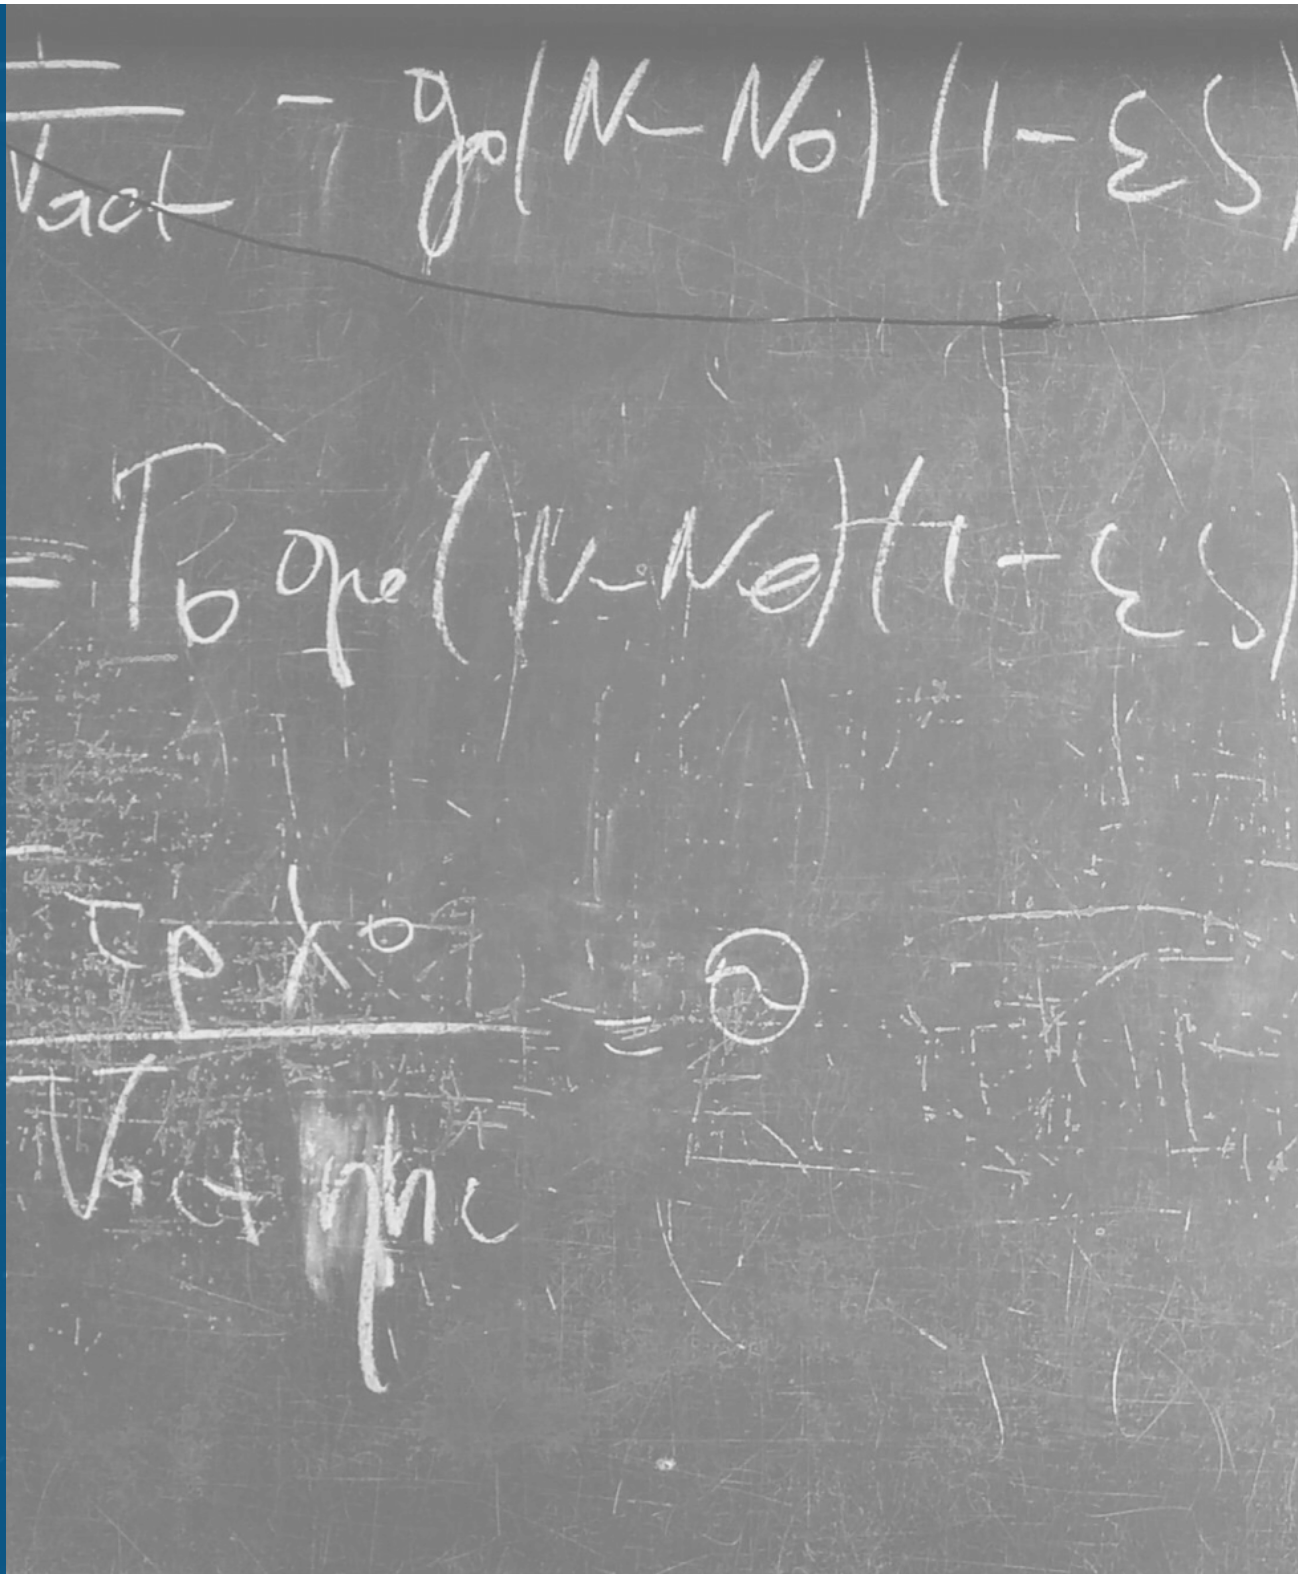 V_act - g_0(N - N_0)(1 - εS)
= Γ_0 g_0(N - N_0)(1 - εS)
τ_p λ_0
V_act η h c =